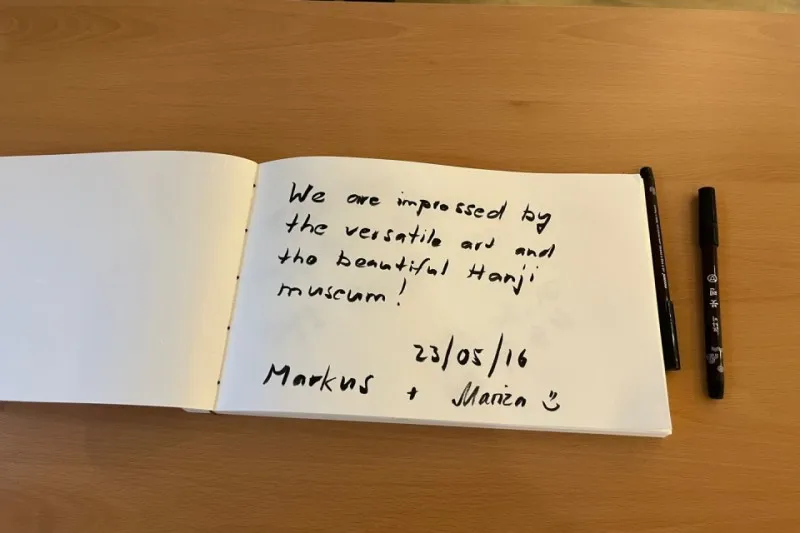 We are impressed by
the versatile art and
the beautiful Hanji
museum!
23/05/16
Markus + Mariza